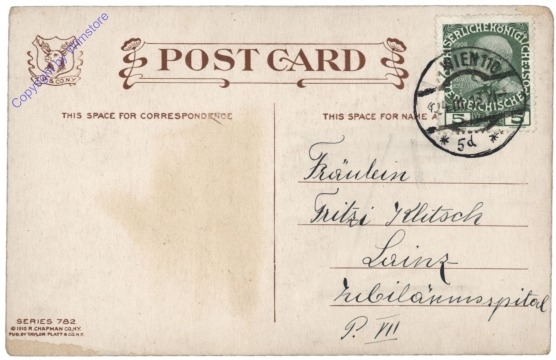 Copyright by hrmstore
POST CARD
THIS SPACE FOR CORRESPONDENCE
THIS SPACE FOR NAME A
KAISERLICHEKÖNIGLICHE
ÖSTERREICHISCHE
5 5
1 WIEN
* 5d *
Fräulein
Fritzi Klitsch
Lainz
Jubiläumsspital
P. VII
SERIES 782
© 1910 R. CHAPMAN CO. N.Y.
PUB. BY TAYLOR PLATT & CO. N.Y.